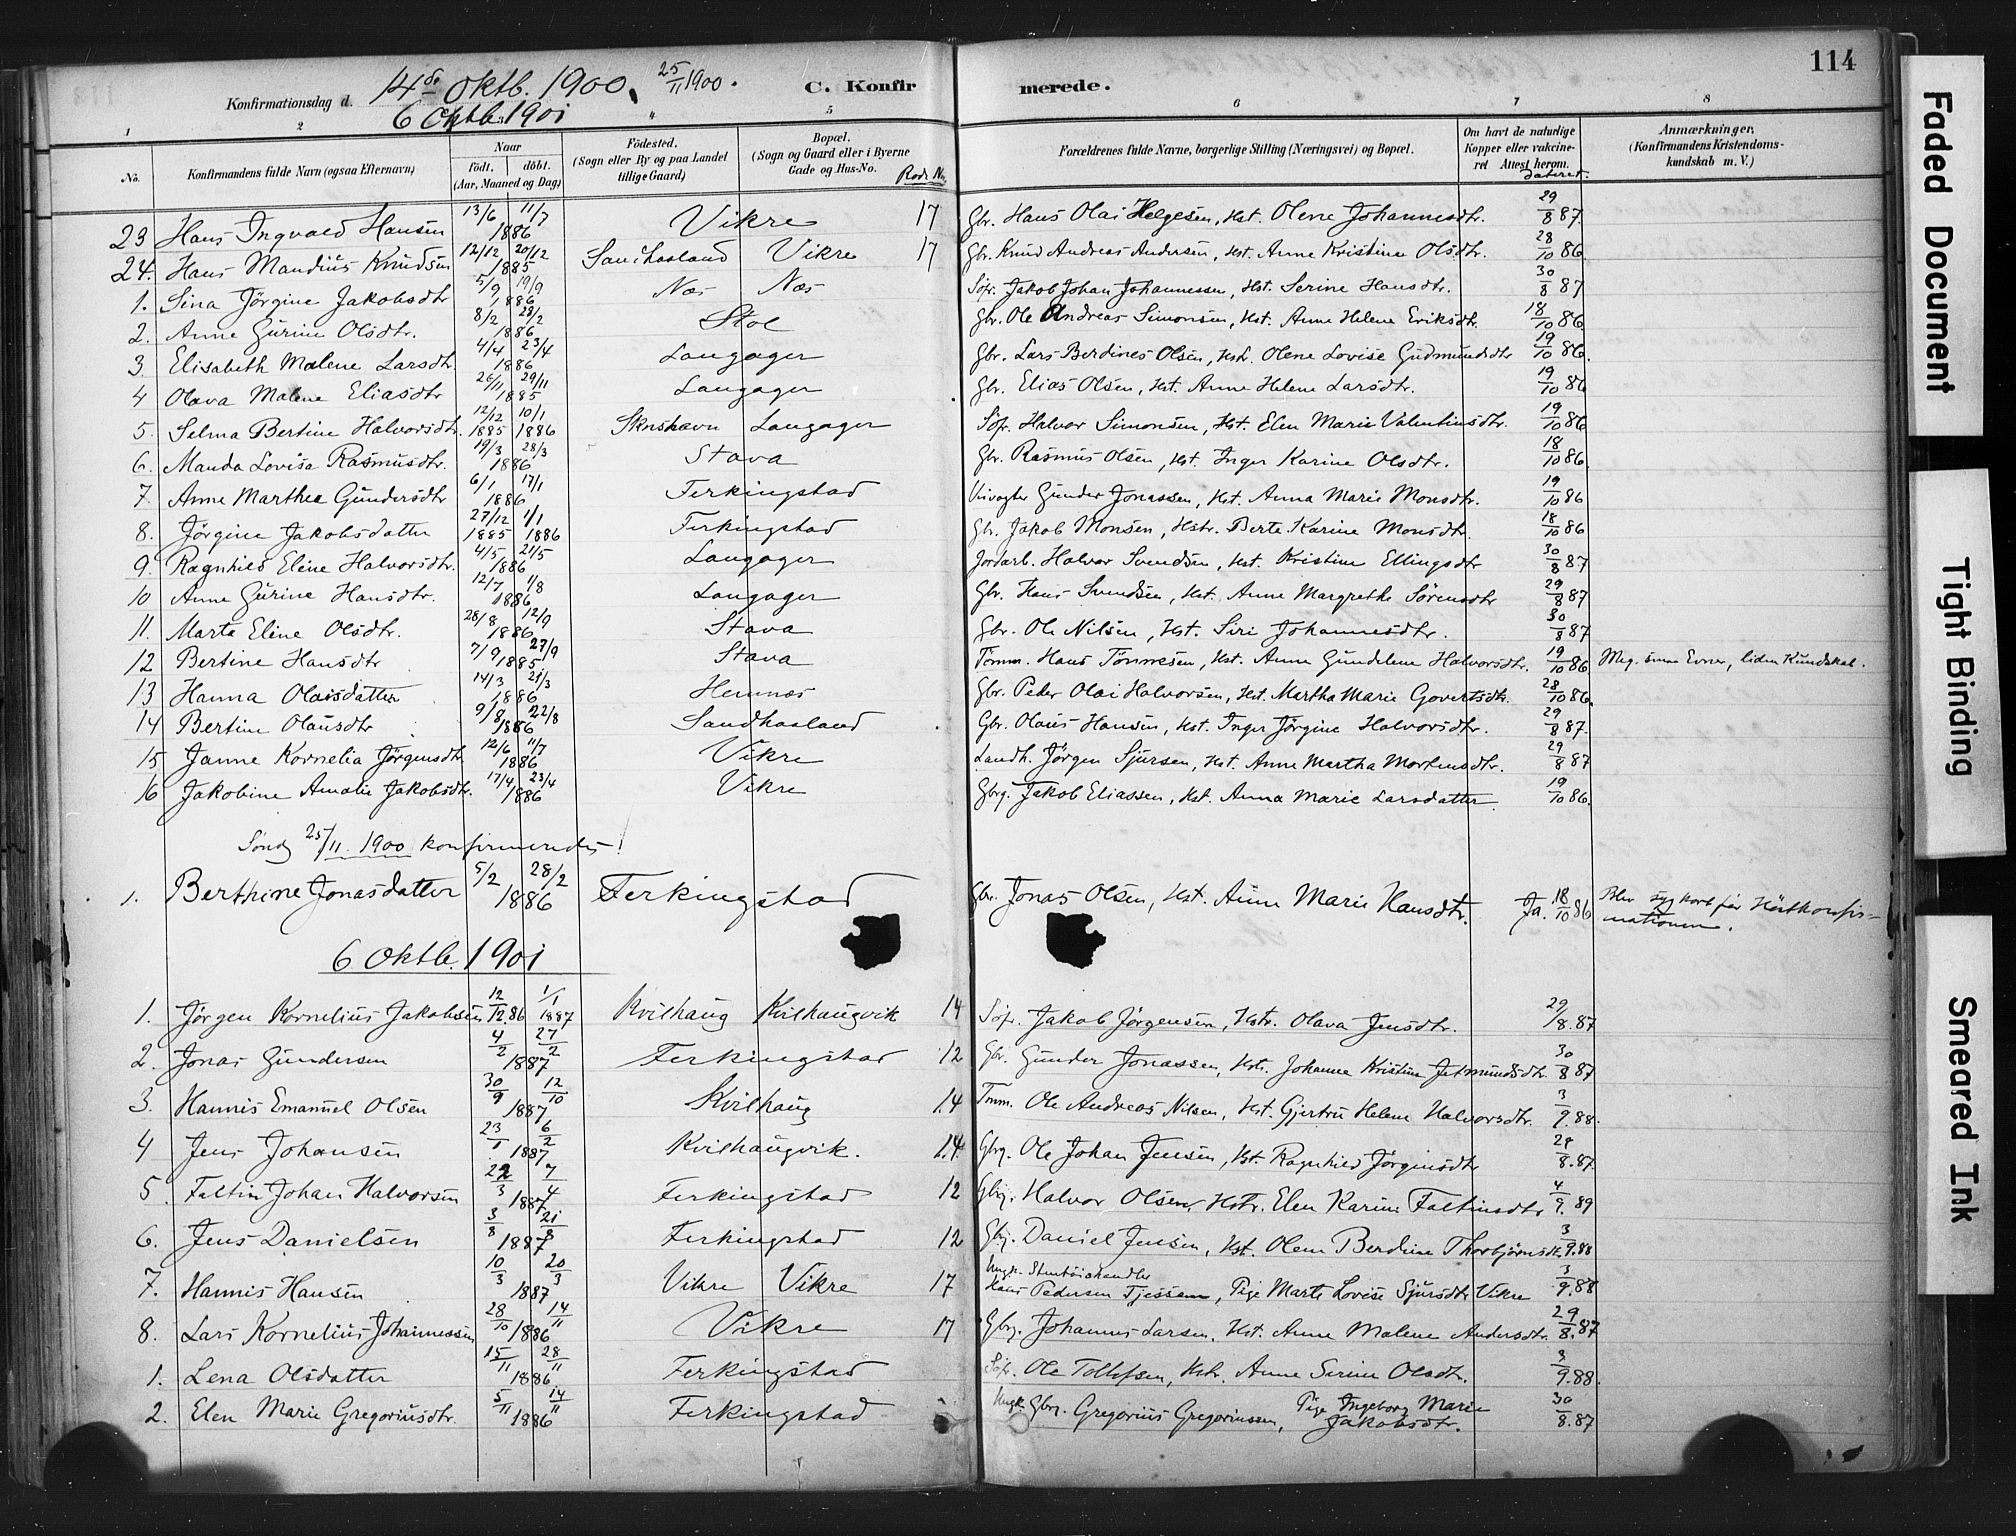 114
Konfirmationsdag d. 14de Oktb. 1900. 25/11 1900. C. Konfirmerede.
6 Oktb. 1901
1 2 3 4 5 6 7 8
No. Konfirmandens fulde Navn (ogsaa Efternavn) Naar Født. døbt. (Aar, Maaned og Dag) Fødested. (Sogn eller By og paa Landet tillige Gaard) Bopæl. (Sogn og Gaard eller i Byerne Gade og Hus-No. Rode No. Forældrenes fulde Navne, borgerlige Stilling (Næringsvei) og Bopæl. Om havt de naturlige Kopper eller vaccineret Attest herom. dateret. Anmærkninger. (Konfirmandens Kristendomskundskab m. V.)
23 Hans Ingvald Hansen 13/6 11/7 1886 Vikre 17 Gbr. Hans Olai Helgesen, Hst. Olene Johannesdtr. 29/8 87
24. Hans Mandius Knudsen 12/12 20/12 1885 Sandhasland Vikre 17 Gbr. Knud Andreas Andersen, Hst. Anne Kristine Olsdtr. 28/10 86
1. Sina Jörgine Jakobsdtr 5/9 19/9 1886 Næs Næs Söfr. Jakob Johan Johannessen, Hst. Serine Hansdtr. 30/8 87
2. Anne Gurine Olsdtr. 8/2 28/2 1886 Stol Gbr. Ole Andreas Simonsen, Hst. Anne Helene Eriksdtr. 18/10 86
3. Elisabeth Malene Larsdtr 4/4 23/4 1886 Langager Gbr. Lars Berdines Olsen, Hst. Olene Lovise Gudmundsdtr 19/10 86.
4 Olava Malene Eliasdtr 26/11 29/11 1885 Langager Gbr. Elias Olsen, Hst. Anne Helene Larsdtr. 19/10 86
5. Selma Bertine Halvorsdtr. 12/12 1885 10/1 1886 Sknshavn Langager Söfr. Halvor Simonsen, Hst. Elen Marie Valentinsdtr. 19/10 86
6. Manda Lovisa Rasmusdtr. 19/3 28/3 1886 Stava Gbr. Rasmus Olsen, Hst. Inger Karine Olsdtr. 18/10 86.
7. Anne Marthea Gundersdtr 6/1 17/1 1886 Ferkingstad Gunder Jonassen, Hst. Anna Marie Monsdtr. 19/10 86
8. Jörgine Jakobsdatter 27/12 1885 1/1 1886 Ferkingstad Gbr. Jakob Monsen, Hstr. Berte Karine Monsdtr. 18/10 86
9. Ragnhild Eline Halvorsdtr. 4/5 21/5 1886 Langager Jordarb. Halvor Svendsen, Hst. Kristine Ellingsdtr 30/8 87
10 Anne Gurine Hansdtr. 12/7 1/8 1886 Langager Gbr. Hans Svendsen, Hst. Anne Margrethe Sörensdtr 29/8 87
11. Marta Eline Olsdtr. 28/8 12/9 1886 Stava Gbr. Ole Nilsen, Hst. Siri Johannesdtr. 30/8 87
12 Bertine Hansdtr 7/9 27/9 1885 Stava Tömm. Hans Tönnesen, Hst. Anne Gundelene Halvorsdtr. 19/10 86 Meg. smaa Evner, liden Kundskab.
13 Hanna Olaisdatter 14/3 21/3 1886 Hemnes Gbr. Peder Olai Halvorsen, Hst. Martha Marie Govertsdtr. 28/10 86.
14 Bertine Olausdtr 9/8 22/8 1886 Sandhasland Gbr. Olaus Hansen, Hst. Inger Jörgine Halvorsdtr. 29/8 87.
15 Janne Kornelia Jörgensdtr 12/6 11/7 1886 Vikre Landh. Jörgen Sjursen, Hst. Anne Martha Mortensdtr. 29/8 87
16 Jakobine Amalie Jakobsdtr. 17/4 23/4 1886 Vikre Gbrg. Jakob Eliassen, Hst. Anna Marie Larsdatter. 19/10 86.
Sönd. 25/11 1900 konfirmeredes!
1. Berthine Jonasdatter 5/2 28/2 1886 Ferkingstad Gbr. Jonas Olsen, Hst. Anne Marie Hansdtr. Ja. 18/10 86 Blev syg kort før Höstkonfirmationen.
6. Oktb. 1901
1. Jörgen Kornelius Jakobsen 12/12.86 1/1 1887 Kvilhaug Kvilhaugvik 14 Söfr. Jakob Jörgensen, Hstr. Olava Jensdtr. 29/8.87
2. Jonas Gundersen 4/2 27/2 1887 Ferkingstad 12 Gbr. Gunder Jonassen, Hstr. Johanne Kristine Jetmundsdtr. 30/8 87
3. Hannis Emanuel Olsen 30/9 12/10 1887 Kvilhaug 14 Tmm. Ole Andreas Nilsen, Hst. Gjertru Helene Halvorsdtr. 3/9.88.
4 Jens Johansen 23/1 6/2 1887 Kvilhaugvik. 14 Gbrg. Ole Johan Jensen, Hst. Ragnhild Jörginsdtr 29/8.87
5. Faltin Johan Halvorsen 22/3 7/4 1887 Ferkingstad 12 Gbrg. Halvor Olsen, Hstr. Elen Karine Faltinsdtr 4/9.89
6. Jens Danielsen 3/8 21/8 1887 Ferkingstad 12 Gbrg. Daniel Jensen, Hst. Olene Berdine Thorbjörnsdtr. 3/9.88
7. Hannis Hansen 10/3 20/3 1887 Vikre Vikre 17 Ungk. Stentöishandler Hans Pedersen Tjessem, Pige Marte Lovise Sjursdtr Vikre 3/9.88
8. Lars Kornelius Johannessen 28/10 14/11 1886 Vikre 17 Gbrg. Johannes Larsen, Hst. Anne Malene Andersdtr. 29/8.87
1. Lena Olsdatter 15/11 28/11 1886 Ferkingstad Söfr. Ole Tollefsen, Hstr. Anne Serine Olsdtr. 3/9.88.
2. Elen Marie Gregoriusdtr. 5/11 14/11 1886 Ferkingstad Ungk. Gbrg. Gregorius Gregoriussen, Pige Ingeborg Marie Jakobsdtr. 30/8.87
Faded Document
Tight Binding
Smeared Ink